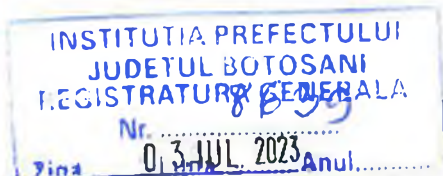 INSTITUTIA PREFECTULUI
JUDETUL BOTOSANI
REGISTRATURA GENERALA
Nr. ..................
Ziua 03. IUL. 2023 Anul...........